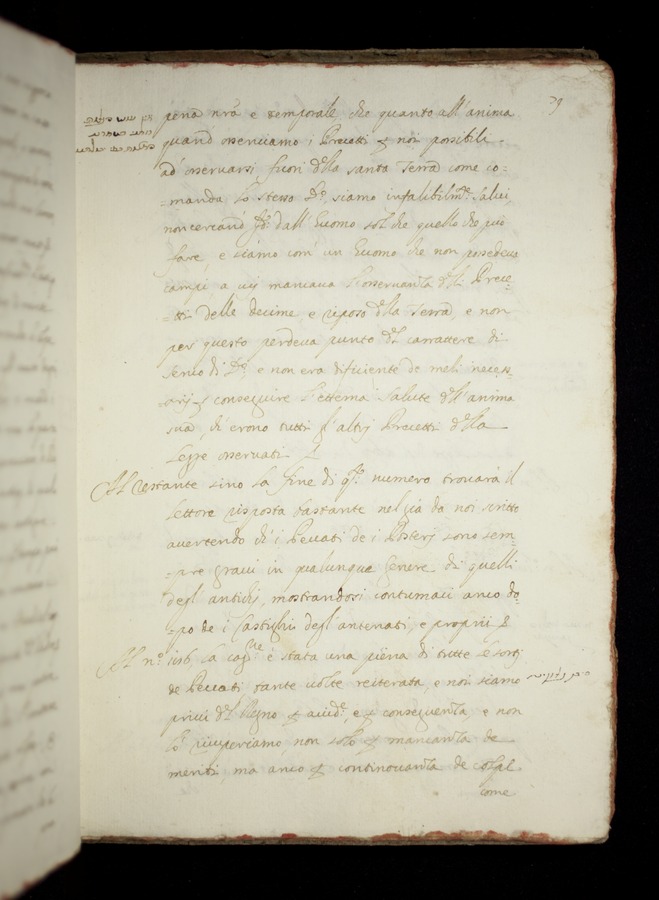 79
pena nrã e temporale, che quanto all'anima
quand osserviamo i Precetti p noi possibili
ad osservarsi fuori della santa Terra come co=
=manda lo stesso Dº, siamo infalibilmᵗᵉ salvi,
non cercand Dall' huomo sol che quello che può
fare, e siamo com' un huomo che non possedeva
campi a cui mancava l'osservanza delli Prece=
=tti delle decime e riposo della Terra, e non
per questo perdeva punto del carrattere di
servo di Dº, e non era difficiente de meli necess=
arij p conseguire l'etterna salute dell'anima
sua, se erono tutti gl'altri Precetti della
Legge osservati
Al restante sino la fine di qᵗº numero trovarà il
Lettore risposta bastante nel già da noi scritto
avertendo che i Peccati de i Posterj sono sem=
=pre gravi in qualunque genere di quelli
degl' antichi, mostrandosi contumaci anco do=
=po de i Castighi degl'antenati, e proprii
Al nº 1116, la caggⁿᵉ è stata una piena di tutte le sorti
de Peccati tante volte reiterata, e noi siamo
privi del Regno p accidᵗᵉ, e p conseguenza, e non
lo ricuperiamo, non solo p mancanza de
meriti, ma anco p continovanza de
come